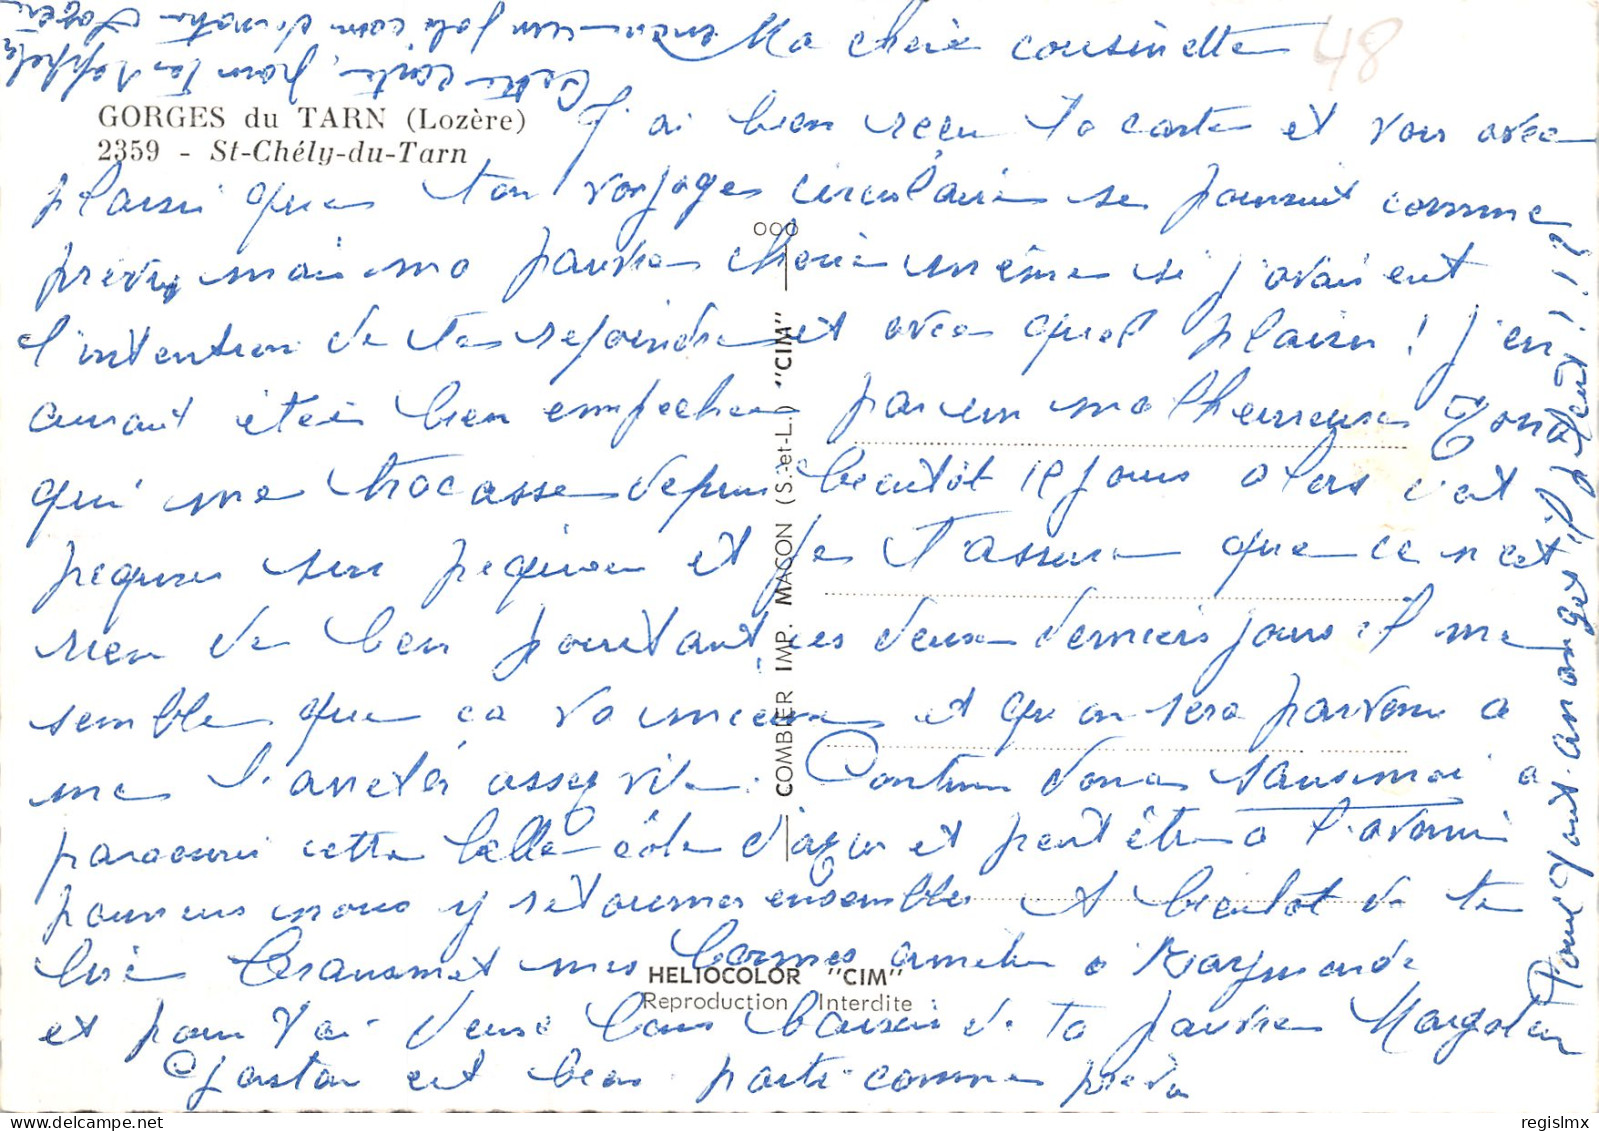 Ma chère cousinette
48
GORGES du TARN (Lozère)
2359 - St-Chély-du-Tarn
J'ai bien reçu ta carte et vois avec
plaisir que ton voyage circulaire se poursuit comme
prévu mais ma pauvre chérie même si j'avais eut
l'intention de te rejoindre et avec quel plaisir ! j'en
aurait étée bien empechée par un malheureux
qui me tracasse depuis bientôt jours alors c'est
piqures sur piqures et je t'assure que ce n'est
rien de bon pourtant ces deux derniers jours il me
semble que ça va mieux et qu'on sera parvenu a
me l'arreter assez vite. Continu donc sans moi a
parcourir cette belle côte d'azur et peut être a l'avenir
pourrons nous y retourner ensembles A bientot de te
lire transmet mes bonnes amitiés a Raymonde
et pour toi deux bons baisers de ta pauvre Margot
Gaston est bien parti comme prévu
Cette carte, pour te rappeler
un joli coin de notre Lozère
ooo
COMBIER IMP. MACON (S.-et-L.) "CIM"
HELIOCOLOR "CIM"
Reproduction Interdite
regislmx